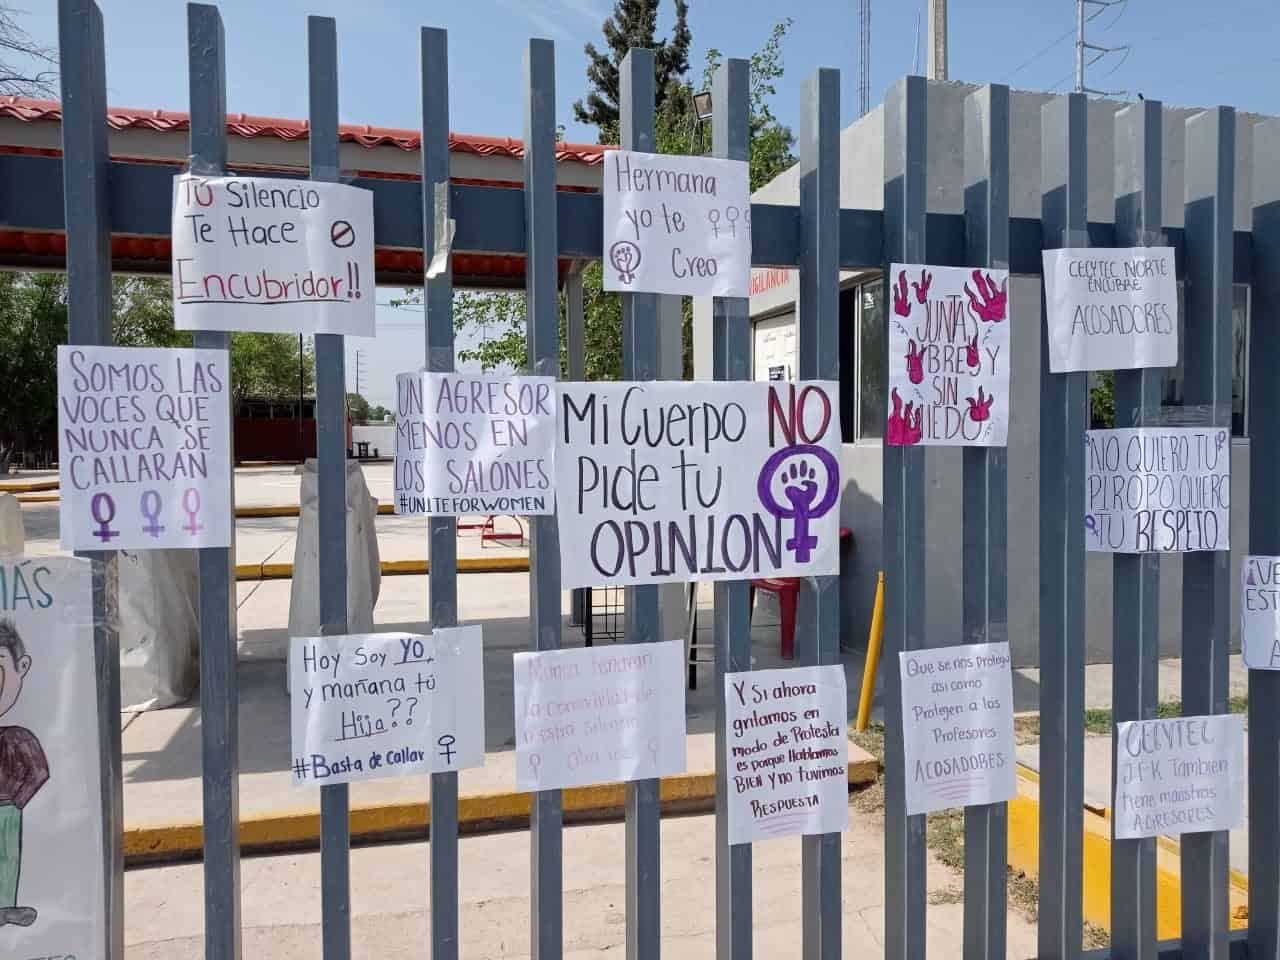 TÚ Silencio
Te Hace
Encubridor!!
Hermana
yo te
Creo
VIGILANCIA
JUNTAS
LIBRES Y
SIN
MIEDO
CECYTEC NORTE
ENCUBRE
ACOSADORES
SOMOS LAS
VOCES QUE
NUNCA SE
CALLARÁN
UN AGRESOR
MENOS EN
LOS SALONES
#UNITEFORWOMEN
Mi Cuerpo NO
Pide tu
OPINION
NO QUIERO TU
PIROPO, QUIERO
TU RESPETO
MÁS
Hoy Soy Yo,
y mañana tú
Hija??
#Basta de Callar
Nunca tendrán
la comodidad de
nuestro silencio
Y Si ahora
gritamos en
modo de Protesta
es porque Hablamos
BIEN y no tuvimos
RESPUESTA
Que se nos Protega
así como
Protegen a los
Profesores
ACOSADORES
CECYTEC
J.F.K También
tiene maestros
AGRESORES